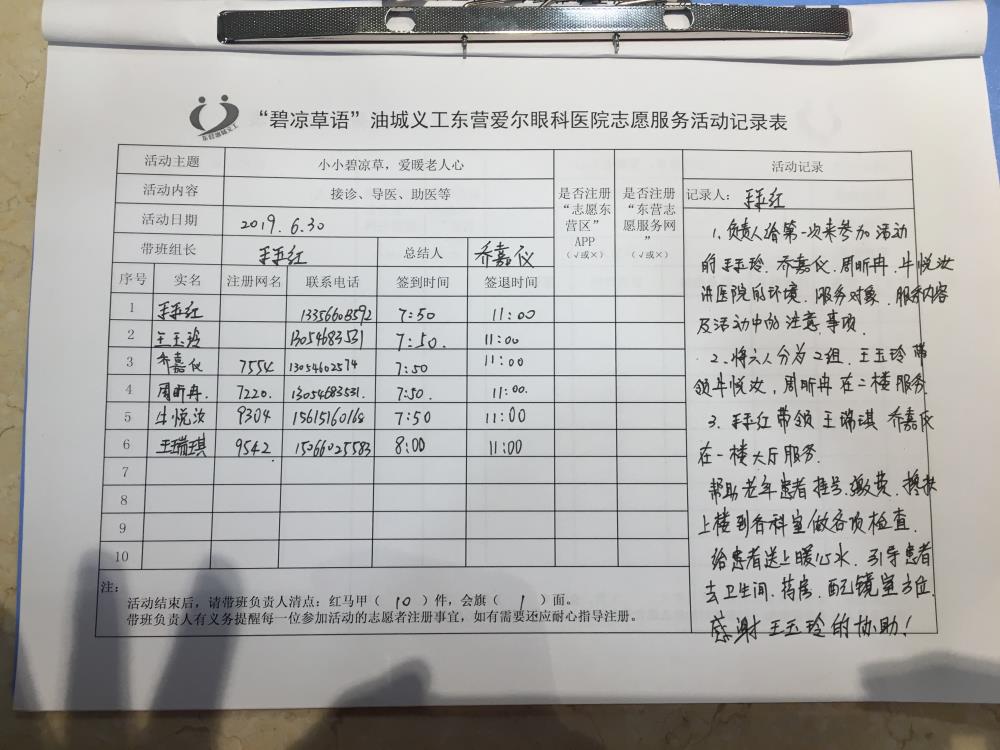 “碧凉草语”油城义工东营爱尔眼科医院志愿服务活动记录表
活动主题 小小碧凉草，爱暖老人心
活动内容 接诊、导医、助医等
活动日期 2019.6.30
带班组长 总结人 乔嘉仪
序号 实名 注册网名 联系电话 签到时间 签退时间
是否注册“志愿东营区”APP（√或×）
是否注册“东营志愿服务网”（√或×）
1 13356608592 7:50 11:00
2 王玉玲 13054683531 7:50. 11:00
3 乔嘉仪 7554 13054602574 7:50 11:00
4 周昕冉 7220. 13054683531. 7:50. 11:00.
5 牛悦汝 9304 15615160168 7:50 11:00
6 王瑞琪 9542 15066025583 8:00 11:00
7
8
9
10
注：
活动结束后，请带班负责人清点：红马甲（ 10 ）件，会旗（ 1 ）面。
带班负责人有义务提醒每一位参加活动的志愿者注册事宜，如有需要还应耐心指导注册。
活动记录
记录人：
1. 负责人给第一次来参加活动
的王玉玲、乔嘉仪、周昕冉、牛悦汝
讲医院的环境、服务对象、服务内容
及活动中的注意事项.
2. 将六人分为2组，王玉玲带
领牛悦汝，周昕冉在二楼服务
3. 带领王瑞琪 乔嘉仪
在一楼大厅服务.
帮助老年患者挂号、缴费、搀扶
上楼到各科室做各项检查.
给患者送上暖心水、引导患者
去卫生间、药房、配镜室方位.
感谢王玉玲的协助！